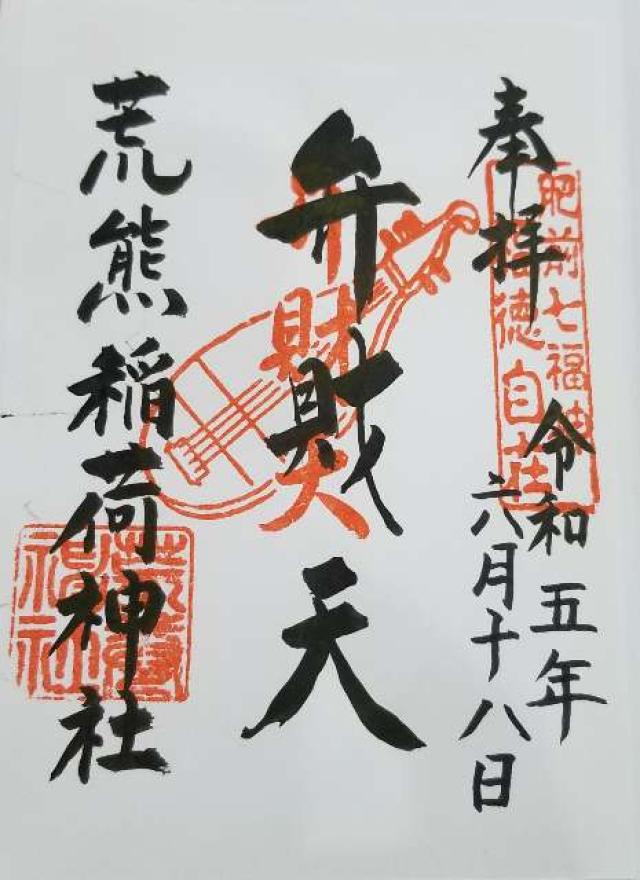 奉拝
肥前七福神
福徳自在
令和五年
六月十八日
弁財天
弁財天
荒熊稲荷神社